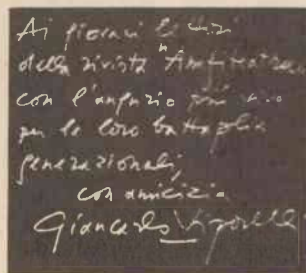 Ai giovani
della rivista "Anfiteatro"
con l'augurio più
per le loro battaglie
generazionali,
con amicizia
Giancarlo Vigorelli